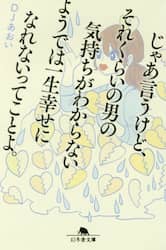 じゃあ言うけど、
それくらいの男の
気持ちがわからない
ようでは一生幸せに
なれないってことよ。
DJあおい
幻冬舎文庫